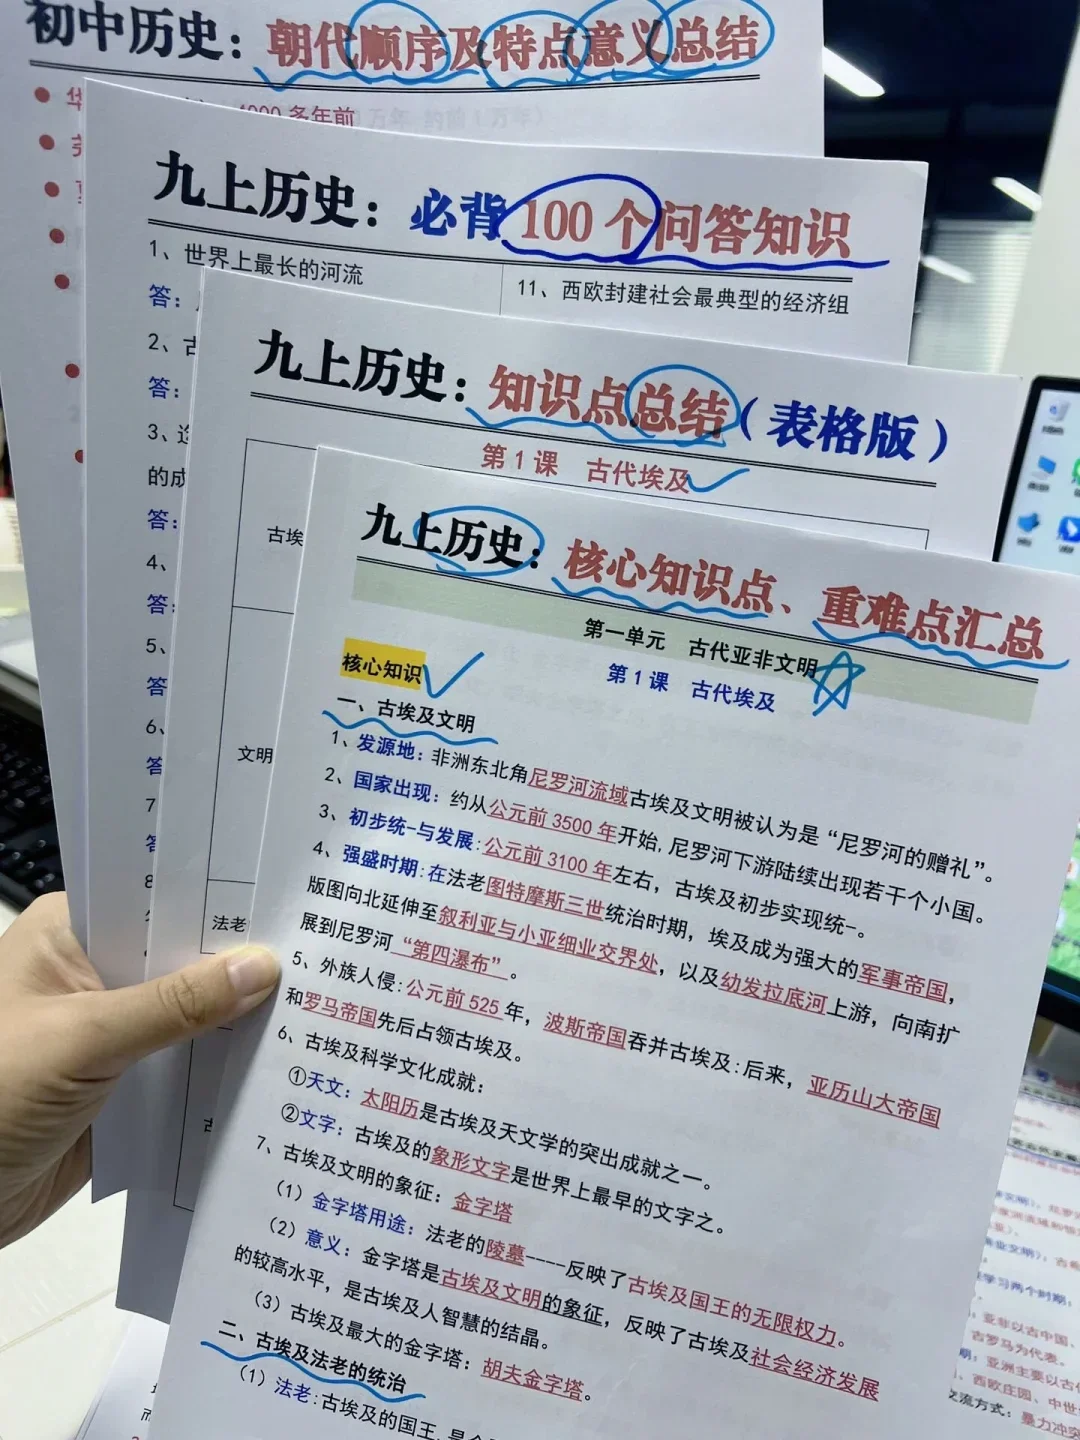 初中历史：朝代顺序及特点意义总结
4000多年前
九上历史：必背100个问答知识
1、世界上最长的河流
答：
2、古
答：
3、
的成
答：
4、
答：
5、
答
6、
答
7
答
8
11、西欧封建社会最典型的经济组
九上历史：知识点总结（表格版）
第1课 古代埃及
古埃
文明
法老
九上历史：核心知识点、重难点汇总
第一单元 古代亚非文明
第1课 古代埃及
核心知识
一、古埃及文明
1、发源地：非洲东北角尼罗河流域古埃及文明被认为是“尼罗河的赠礼”。
2、国家出现：约从公元前3500年开始,尼罗河下游陆续出现若干个小国。
3、初步统-与发展:公元前3100年左右，古埃及初步实现统-。
4、强盛时期:在法老图特摩斯三世统治时期，埃及成为强大的军事帝国，
版图向北延伸至叙利亚与小亚细业交界处，以及幼发拉底河上游，向南扩
展到尼罗河“第四瀑布”。
5、外族人侵:公元前525年，波斯帝国吞并古埃及:后来，亚历山大帝国
和罗马帝国先后占领古埃及。
6、古埃及科学文化成就：
①天文：太阳历是古埃及天文学的突出成就之一。
②文字：古埃及的象形文字是世界上最早的文字之。
7、古埃及文明的象征：金字塔
（1）金字塔用途：法老的陵墓----反映了古埃及国王的无限权力。
（2）意义：金字塔是古埃及文明的象征，反映了古埃及社会经济发展
的较高水平，是古埃及人智慧的结晶。
（3）古埃及最大的金字塔：胡夫金字塔。
二、古埃及法老的统治
（1）法老:古埃及的国王
学习两个时期：
亚非以古中国、
古罗马为代表。
亚洲主要以古代
西欧庄园、中世
交流方式：暴力冲突